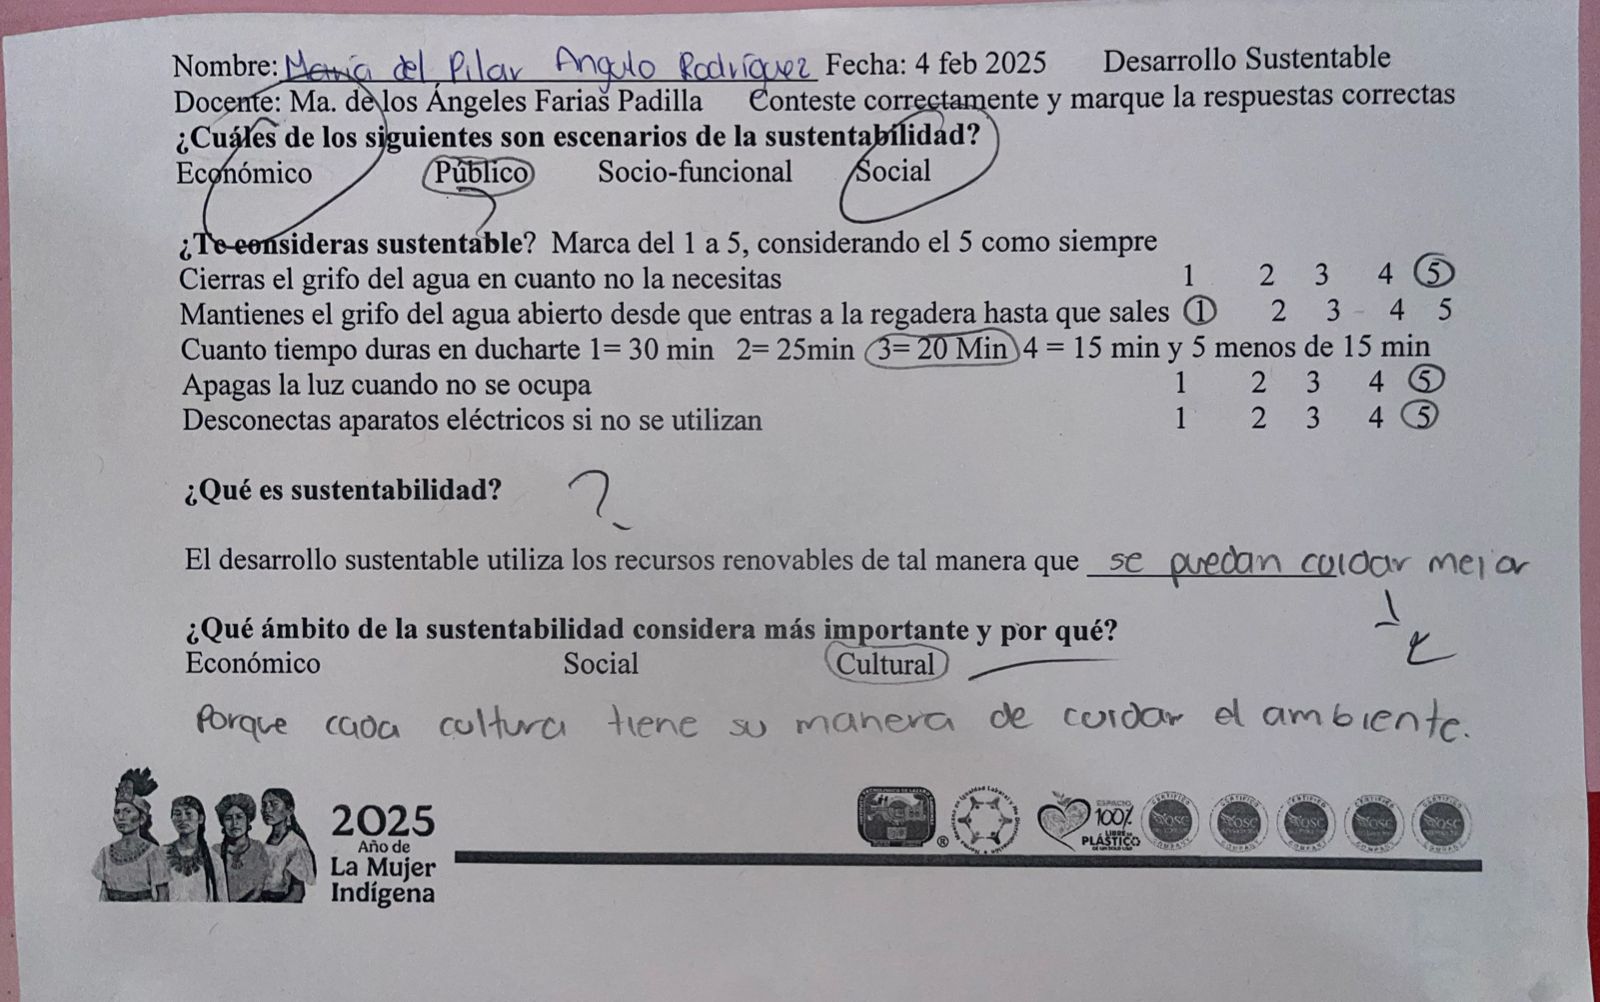 Nombre: María del Pilar Angulo Rodríguez Fecha: 4 feb 2025 Desarrollo Sustentable
Docente: Ma. de los Ángeles Farias Padilla Conteste correctamente y marque la respuestas correctas
¿Cuáles de los siguientes son escenarios de la sustentabilidad?
Económico Público Socio-funcional Social
¿Te consideras sustentable? Marca del 1 a 5, considerando el 5 como siempre
Cierras el grifo del agua en cuanto no la necesitas 1 2 3 4 5
Mantienes el grifo del agua abierto desde que entras a la regadera hasta que sales 1 2 3 4 5
Cuanto tiempo duras en ducharte 1= 30 min 2= 25min 3= 20 Min 4 = 15 min y 5 menos de 15 min
Apagas la luz cuando no se ocupa 1 2 3 4 5
Desconectas aparatos eléctricos si no se utilizan 1 2 3 4 5
¿Qué es sustentabilidad? ?
El desarrollo sustentable utiliza los recursos renovables de tal manera que se puedan cuidar mejor
¿Qué ámbito de la sustentabilidad considera más importante y por qué?
Económico Social Cultural
Porque cada cultura tiene su manera de cuidar el ambiente.
2025
Año de
La Mujer
Indígena
ESPACIO
100%
LIBRE DE
PLÁSTICO